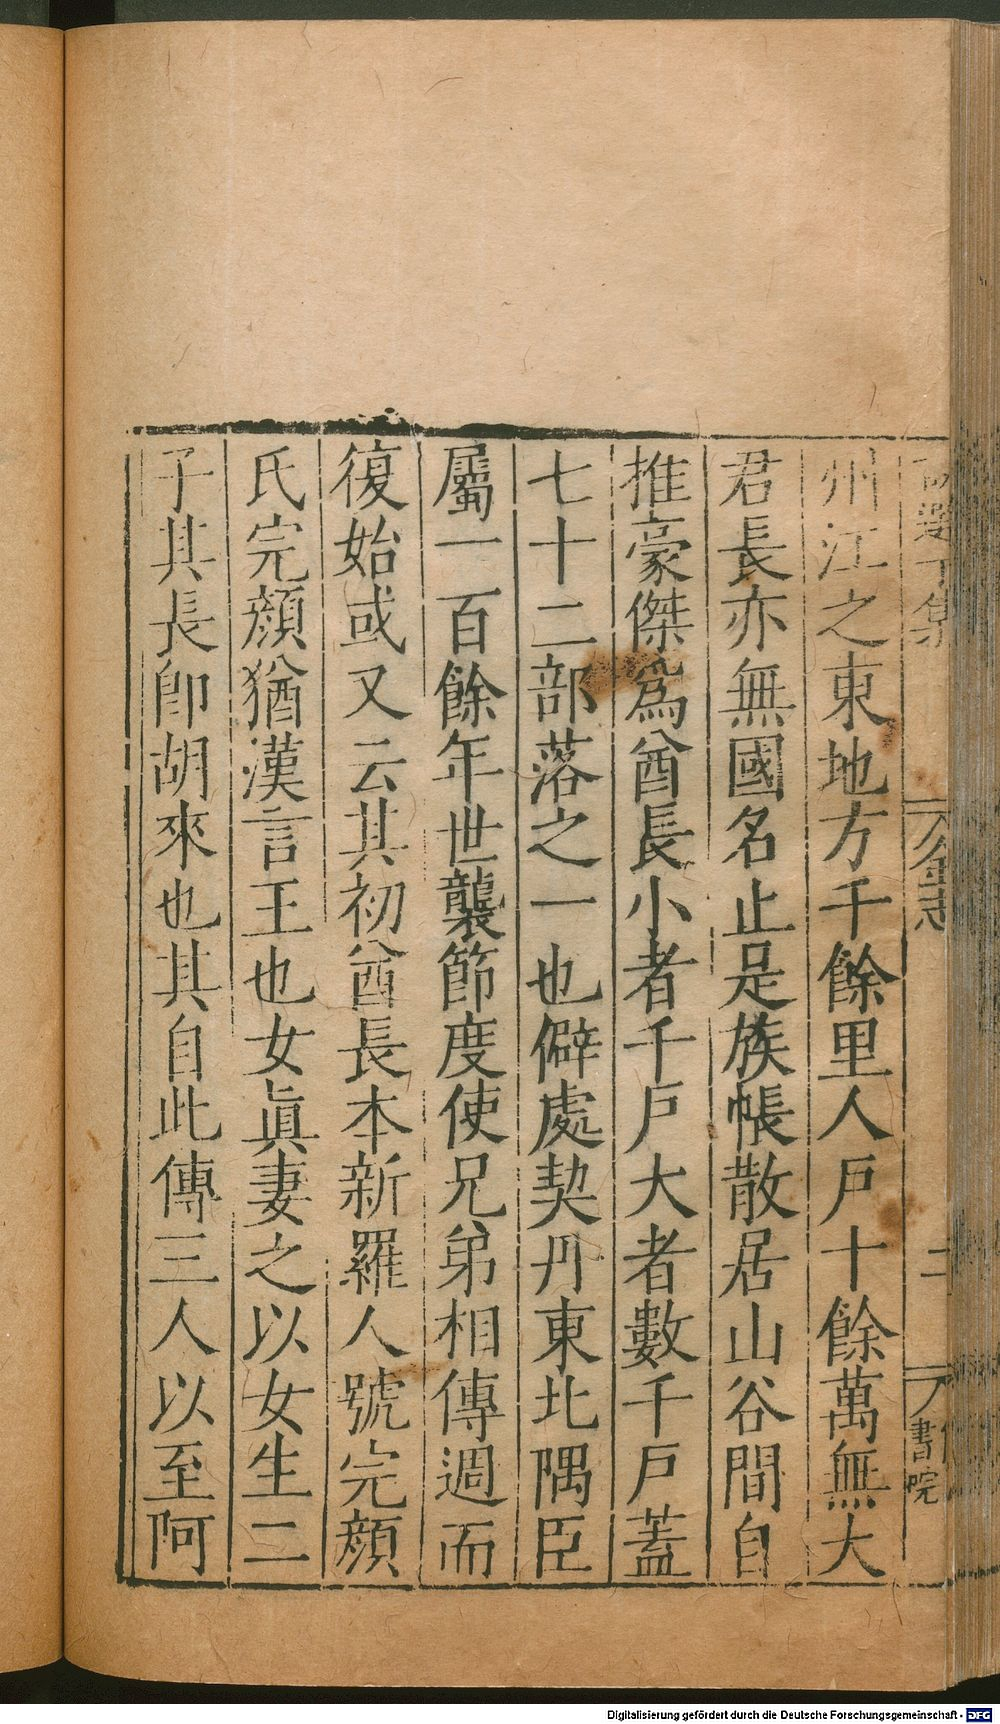 州江之東地方千餘里人戶十餘萬無大
君長亦無國名止是族帳散居山谷間自
推豪傑爲酋長小者千戶大者數千戶蓋
七十二部落之一也僻處契丹東北隅臣
屬一百餘年世襲節度使兄弟相傳週而
復始或又云其初酋長本新羅人號完顔
氏完顔猶漢言王也女眞妻之以女生二
子其長卽胡來也其自此傳三人以至阿
金志
書院
Digitalisierung gefördert durch die Deutsche Forschungsgemeinschaft - DFG